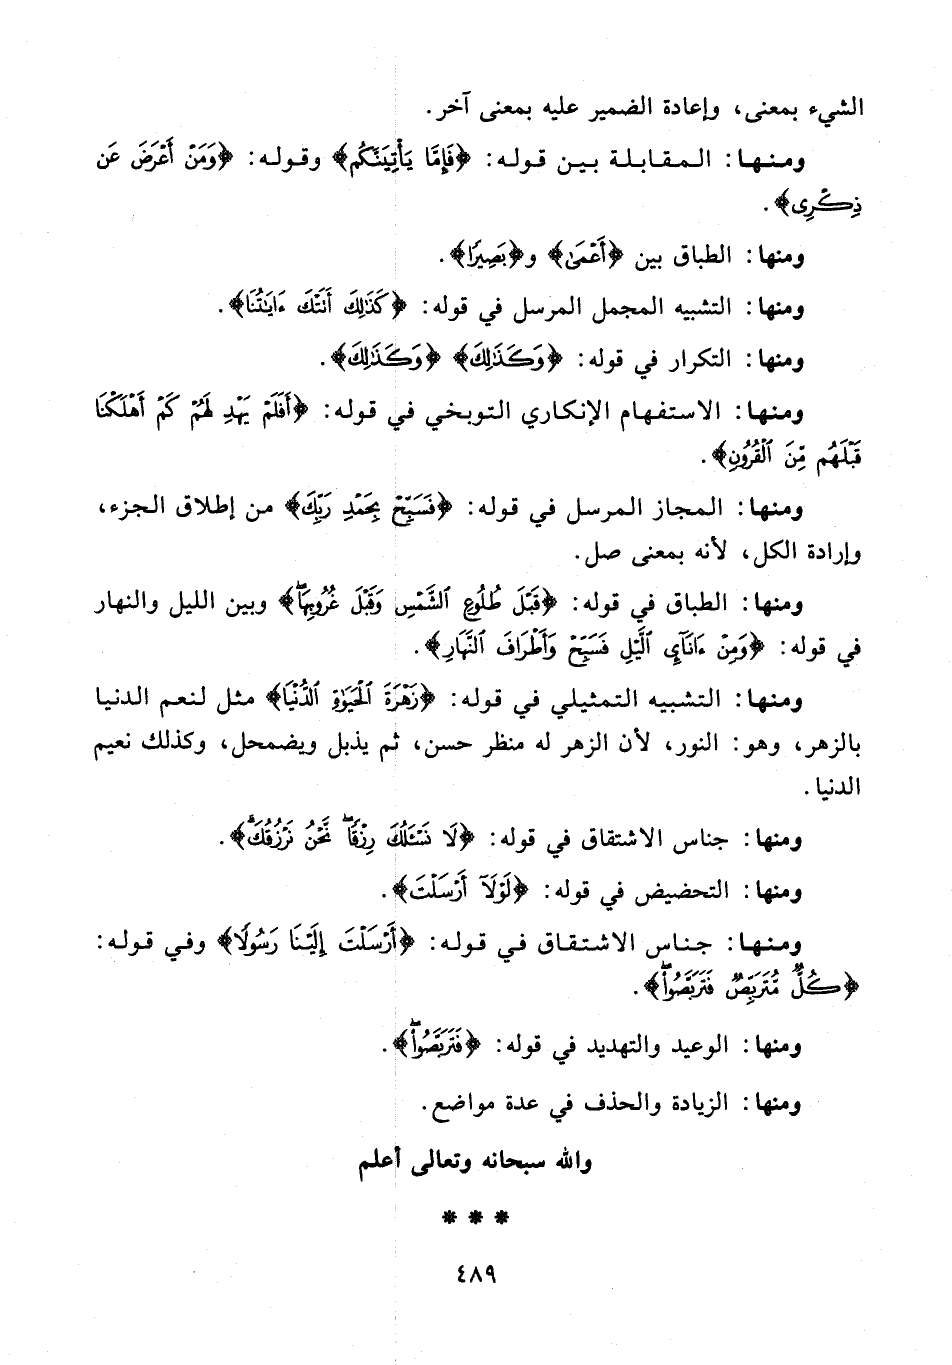 الشيء بمعنى، وإعادة الضمير عليه بمعنى آخر.
ومنها: المقابلة بين قوله: ﴿فَإِمَّا يَأْتِيَنَّكُم﴾ وقوله: ﴿وَمَنْ أَعْرَضَ عَن
ذِكْرِى﴾.
ومنها: الطباق بين ﴿أَعْمَىٰ﴾ و﴿بَصِيرًا﴾.
ومنها: التشبيه المجمل المرسل في قوله: ﴿كَذَٰلِكَ أَتَتْكَ ءَايَٰتُنَا﴾.
ومنها: التكرار في قوله: ﴿وَكَذَٰلِكَ﴾ ﴿وَكَذَٰلِكَ﴾.
ومنها: الاستفهام الإنكاري التوبخي في قوله: ﴿أَفَلَمْ يَهْدِ لَهُمْ كَمْ أَهْلَكْنَا
قَبْلَهُم مِّنَ ٱلْقُرُونِ﴾.
ومنها: المجاز المرسل في قوله: ﴿فَسَبِّحْ بِحَمْدِ رَبِّكَ﴾ من إطلاق الجزء،
وإرادة الكل، لأنه بمعنى صل.
ومنها: الطباق في قوله: ﴿قَبْلَ طُلُوعِ ٱلشَّمْسِ وَقَبْلَ غُرُوبِهَاۖ﴾ وبين الليل والنهار
في قوله: ﴿وَمِنْ ءَانَآئِ ٱلَّيْلِ فَسَبِّحْ وَأَطْرَافَ ٱلنَّهَارِ﴾.
ومنها: التشبيه التمثيلي في قوله: ﴿زَهْرَةَ ٱلْحَيَوٰةِ ٱلدُّنْيَا﴾ مثل لنعم الدنيا
بالزهر، وهو: النور، لأن الزهر له منظر حسن، ثم يذبل ويضمحل، وكذلك نعيم
الدنيا.
ومنها: جناس الاشتقاق في قوله: ﴿لَا نَسْـَٔلُكَ رِزْقًاۖ نَّحْنُ نَرْزُقُكَۗ﴾.
ومنها: التحضيض في قوله: ﴿لَوْلَآ أَرْسَلْتَ﴾.
ومنها: جناس الاشتقاق في قوله: ﴿أَرْسَلْتَ إِلَيْنَا رَسُولًا﴾ وفي قوله:
﴿كُلٌّ مُّتَرَبِّصٌ فَتَرَبَّصُوا۟ۖ﴾.
ومنها: الوعيد والتهديد في قوله: ﴿فَتَرَبَّصُوا۟ۖ﴾.
ومنها: الزيادة والحذف في عدة مواضع.
والله سبحانه وتعالى أعلم
* * *
٤٨٩